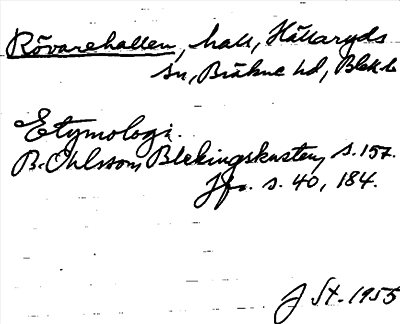 Rövarehallen, hall, Hällaryds
sn, Bräkne hd, Blek.l.
Etymologi.
B. Ohlsson, Blekingskusten, s. 157.
Jfr. s. 40, 184.
J St. 1955